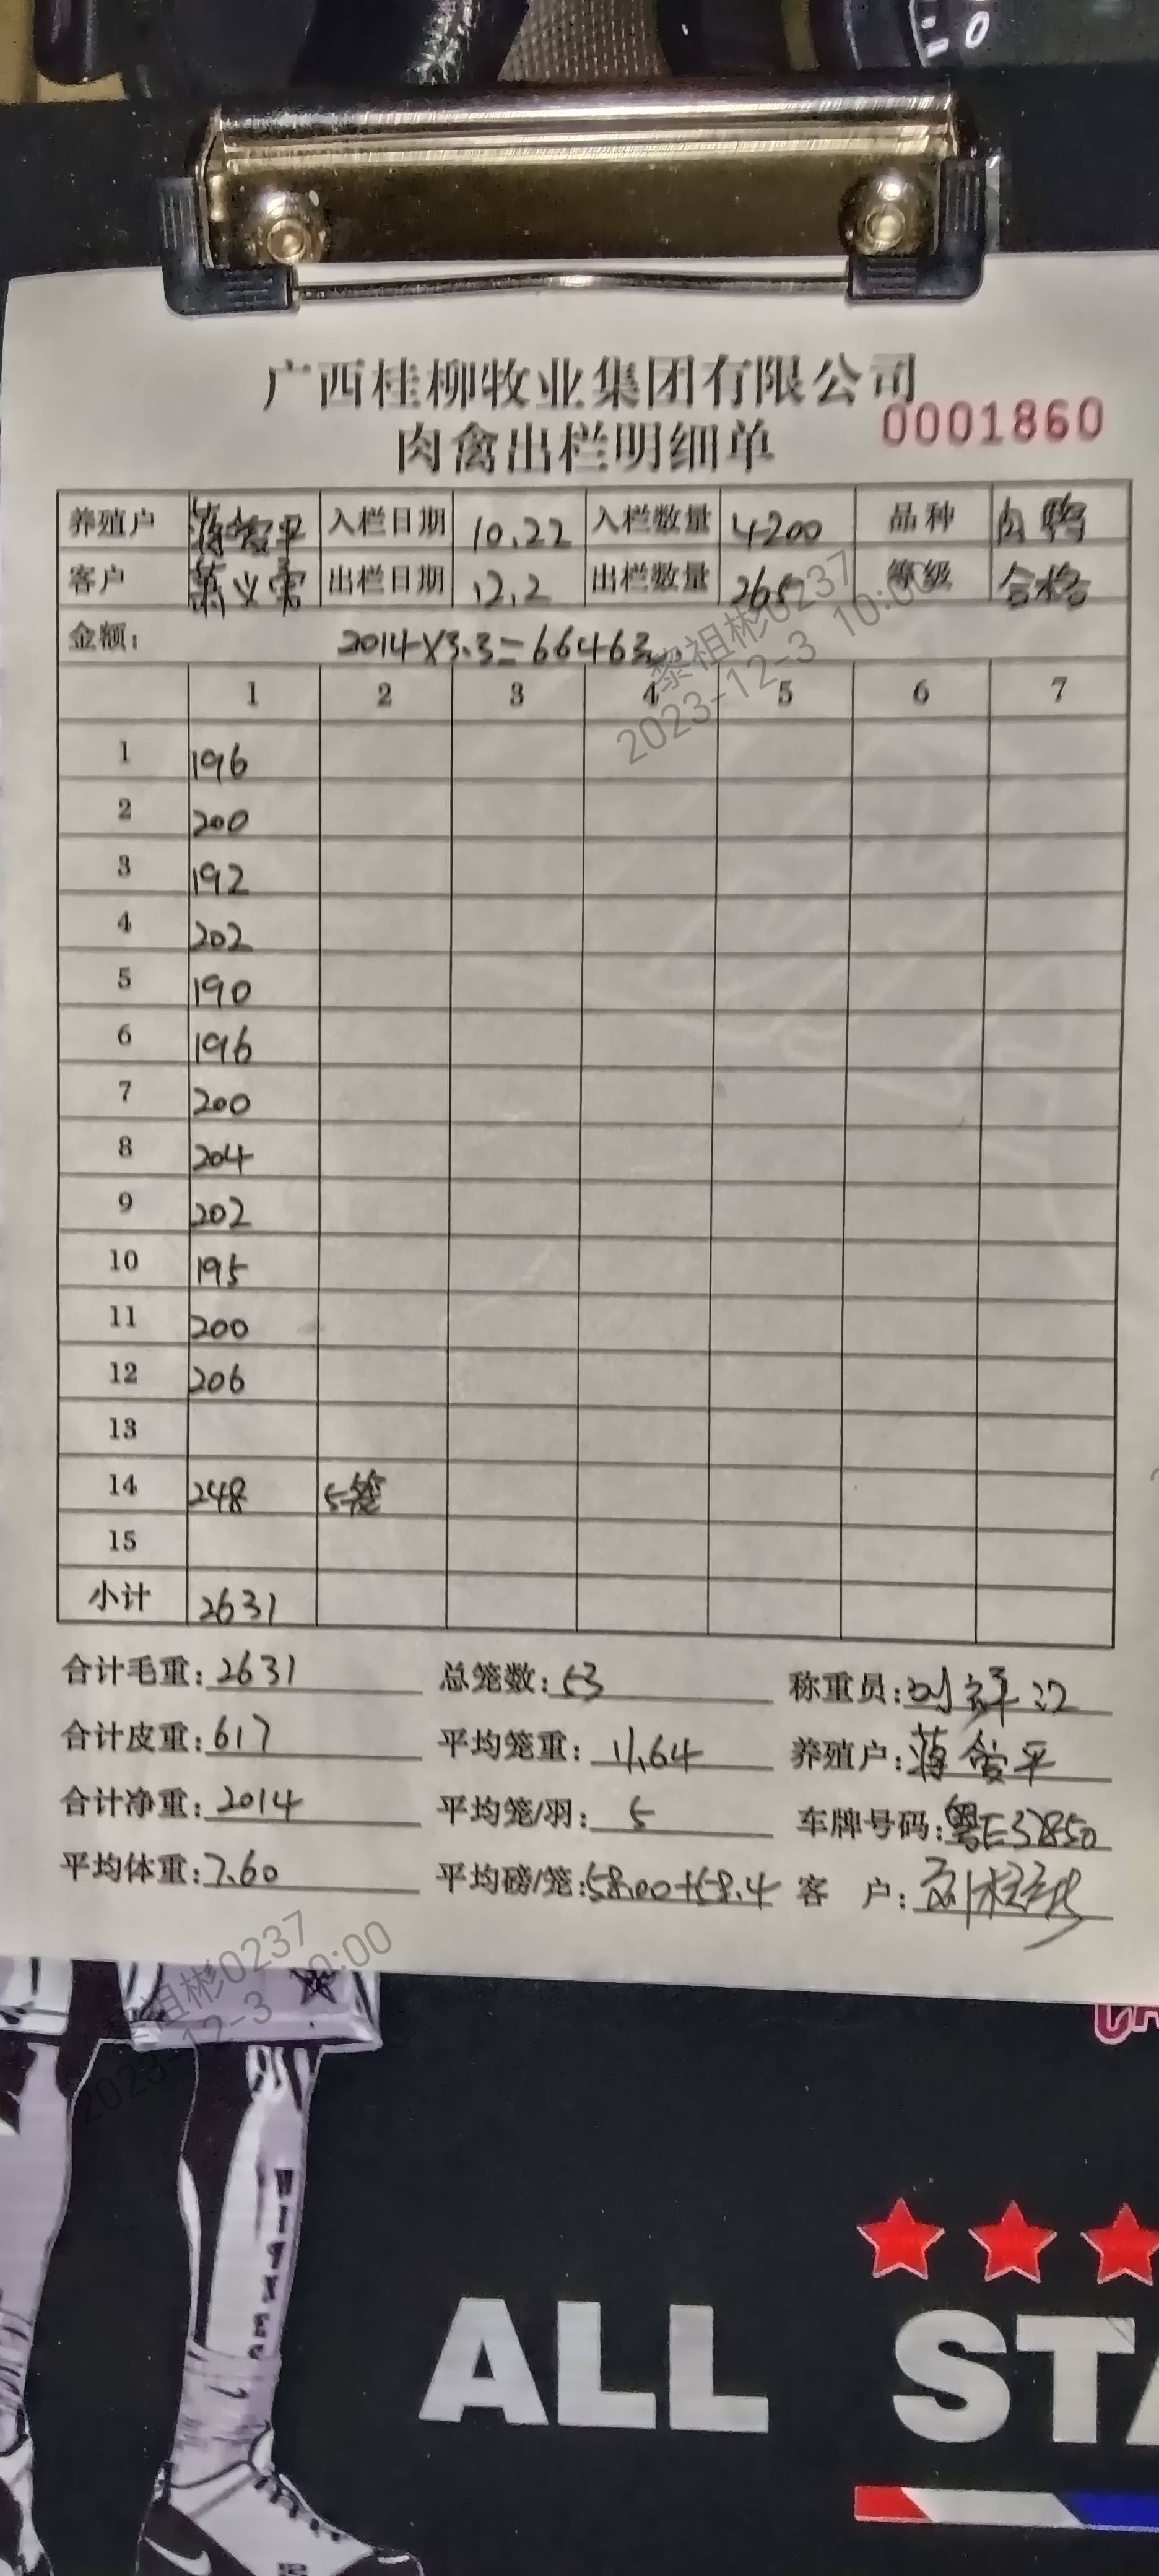 0
广西桂柳牧业集团有限公司
0001860
肉禽出栏明细单
养殖户 平 入栏日期 10.22 入栏数量 4200 品种 肉鸭
客户 义 出栏日期 12.2 出栏数量 265 等级 合格
金额: 2014×3.3=66463
黎祖彬0237
2023-12-3 10:00
1 2 3 4 5 6 7
1 196
2 200
3 192
4 202
5 190
6 196
7 200
8 204
9 202
10 195
11 200
12 206
13
14 248 5笼
15
小计 2631
合计毛重: 2631 总笼数: 53 称重员: 刘
合计皮重: 617 平均笼重: 11.64 养殖户: 平
合计净重: 2014 平均笼/羽: 5 车牌号码: 粤E37850
平均体重: 7.60 平均磅/笼: 58.00+58.4 客 户:
黎祖彬0237
2023-12-3 10:00
ALL STA